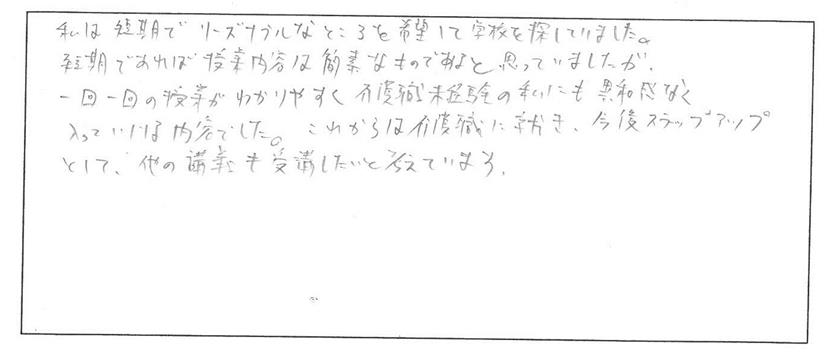 私は短期でリーズナブルなところを希望して学校を探していました。
短期であれば授業内容は簡素なものであると思っていましたが、
一回一回の授業がわかりやすく介護職未経験の私にも異和感なく
入っていける内容でした。これからは介護職に就き、今後ステップアップ
として、他の講義も受講したいと考えています。